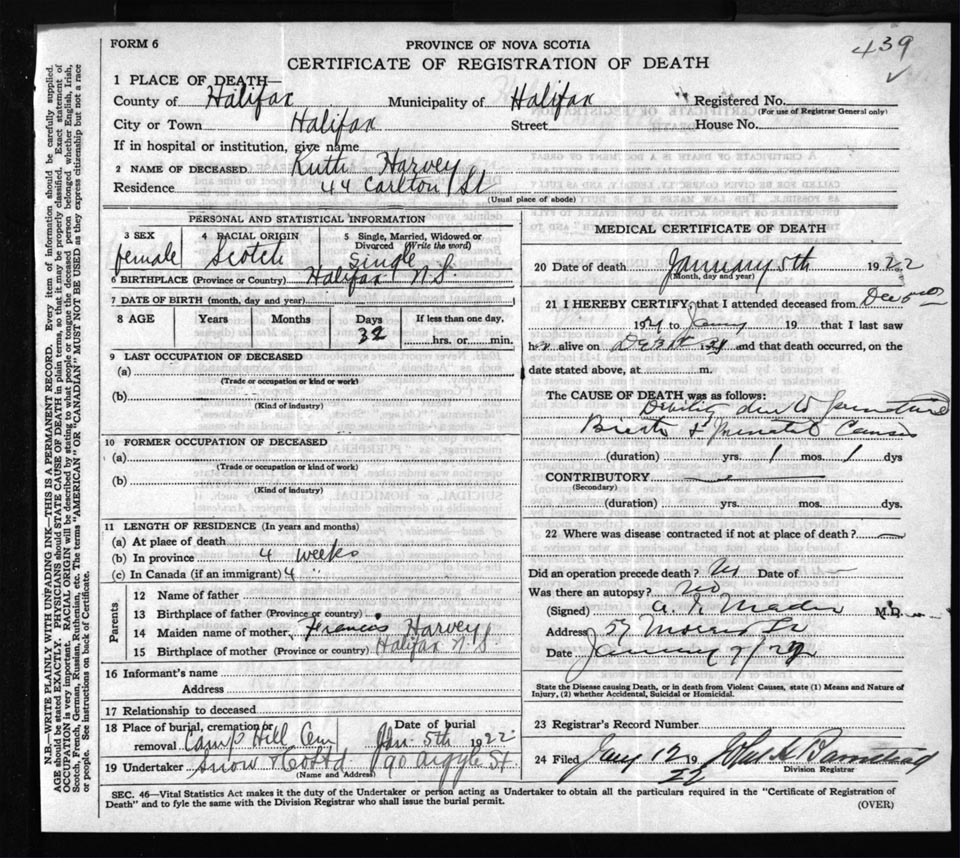 FORM 6
PROVINCE OF NOVA SCOTIA
439
CERTIFICATE OF REGISTRATION OF DEATH
1 PLACE OF DEATH—
County of Halifax Municipality of Halifax Registered No.
(For use of Registrar General only)
City or Town Halifax Street House No.
If in hospital or institution, give name
2 NAME OF DECEASED Ruth Harvey
Residence 44 Carlton St
(Usual place of abode)
PERSONAL AND STATISTICAL INFORMATION
3 SEX 4 RACIAL ORIGIN 5 Single, Married, Widowed or Divorced (Write the word)
female Scotch Single
6 BIRTHPLACE (Province or Country) Halifax N.S.
7 DATE OF BIRTH (month, day and year)
8 AGE Years Months Days If less than one day,
32 hrs. or min.
9 LAST OCCUPATION OF DECEASED
(a)
(Trade or occupation or kind or work)
(b)
(Kind of industry)
10 FORMER OCCUPATION OF DECEASED
(a)
(Trade or occupation or kind of work)
(b)
(Kind of industry)
11 LENGTH OF RESIDENCE (In years and months)
(a) At place of death
(b) In province 4 weeks
(c) In Canada (if an immigrant) 4 "
Parents
12 Name of father
13 Birthplace of father (Province or country)
14 Maiden name of mother Francis Harvey
15 Birthplace of mother (Province or country) Halifax N.S
16 Informant's name
Address
17 Relationship to deceased
18 Place of burial, cremation or removal Camp Hill Cem Date of burial Jan. 5th 1922
19 Undertaker Snow & Co Ltd 90 Argyle St
(Name and Address)
MEDICAL CERTIFICATE OF DEATH
20 Date of death January 5th 1922
(Month, day and year)
21 I HEREBY CERTIFY, that I attended deceased from Dec
1921 to Jany 19 that I last saw
her alive on Dec 31st 1921 and that death occurred, on the
date stated above, at m.
The CAUSE OF DEATH was as follows:
Debility due to premature
Birth &
(duration) yrs. 1 mos. 1 dys
CONTRIBUTORY
(Secondary)
(duration) yrs. mos. dys.
22 Where was disease contracted if not at place of death?
Did an operation precede death? No Date of
Was there an autopsy? No
(Signed) M.D.
Address 57 Morris St
Date January 7/22
State the Disease causing Death, or in death from Violent Causes, state (1) Means and Nature of
Injury, (2) whether Accidental, Suicidal or Homicidal.
23 Registrar's Record Number
24 Filed Jany 12 19 22
Division Registrar
SEC. 46—Vital Statistics Act makes it the duty of the Undertaker or person acting as Undertaker to obtain all the particulars required in the "Certificate of Registration of
Death" and to fyle the same with the Division Registrar who shall issue the burial permit.
(OVER)
N.B.—WRITE PLAINLY WITH UNFADING INK—THIS IS A PERMANENT RECORD. Every item of information should be carefully supplied.
AGE should be stated EXACTLY. PHYSICIANS should STATE CAUSE OF DEATH in plain terms, so that it may be properly classified. Exact statement of
OCCUPATION is very important. RACIAL ORIGIN will be described by stating to what people or tongue the deceased person belonged whether English, Irish,
Scotch, French, German, Russian, Ruthenian, etc. The terms "AMERICAN" OR "CANADIAN" MUST NOT BE USED as they express citizenship but not a race
or people. See instructions on back of Certificate.